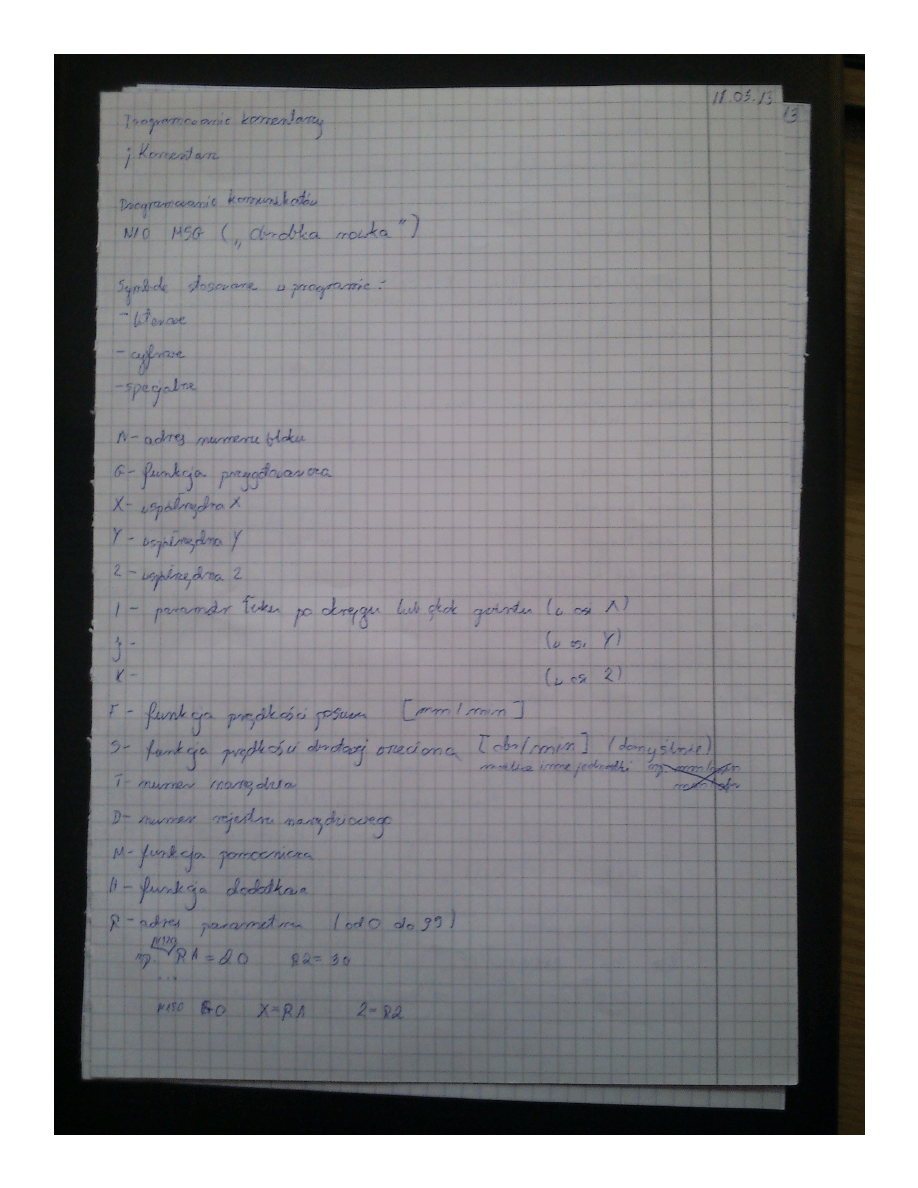 18.03.13
13
Programowanie komentarzy
; Komentarz
Programowanie komunikatów
N10 MSG („Obróbka rowka")
Symbole stosowane w programie:
- literowe
- cyfrowe
- specjalne
N - adres numeru bloku
G - funkcja przygotowawcza
X - współrzędna X
Y - współrzędna Y
Z - współrzędna Z
I - parametr łuku po okręgu lub skok gwintu (w osi X)
J - (w osi Y)
K - (w osi Z)
F - funkcja prędkości posuwu [mm/min]
S - funkcja prędkości obrotowej wrzeciona [obr/min] (domyślnie)
możliwe inne jednostki np. mm/min
mm/obr
T - numer narzędzia
D - numer rejestru narzędziowego
M - funkcja pomocnicza
H - funkcja dodatkowa
R - adres parametru (od 0 do 99)
N110
np. R1=20 R2=30
...
N150 G0 X=R1 Z=R2